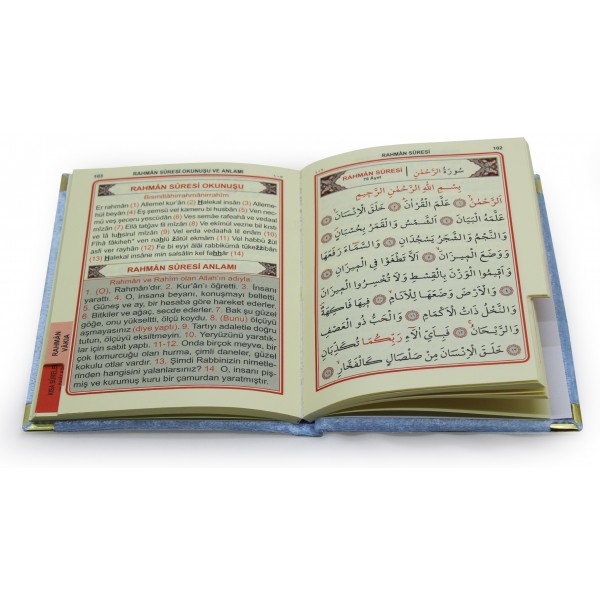 103 RAHMÂN SÛRESİ OKUNUŞU VE ANLAMI
RAHMÂN SÛRESİ OKUNUŞU
Bismillâhirrahmânirrahîm
Er rahmân (1) Allemel kur'ân (2) Halekal insân (3) Alleme-
hül beyân (4) Eş şemsü vel kameru bi husbân (5) Ven nec-
mü veş şeceru yescüdân (6) Ves semâe rafeahâ ve vedaal
mîzân (7) Ellâ tatğav fil mîzân (8) Ve ekîmül vezne bil kıs
ve lâ tuhsirul mîzân (9) Vel erda vedaahâ lil enâm (10)
Fîhâ fâkihetün ven nahlü zâtül ekmâm (11) Vel habbü zül
asfi ver rayhân (12) Fe bi eyyi âlâi rabbikümâ tükezzibân
(13) Halekal insâne min salsâlin kel fehhâr (14)
RAHMÂN SÛRESİ ANLAMI
Rahmân ve Rahîm olan Allah'ın adıyla
1. (O), Rahmân'dır. 2. Kur'ân'ı öğretti. 3. İnsanı
yarattı. 4. O, insana beyanı, konuşmayı belletti.
5. Güneş ve ay, bir hesaba göre hareket ederler.
6. Bitkiler ve ağaç, secde ederler. 7. Bak şu güzel
göğe, onu yükseltti, ölçü koydu. 8. (Bunu) ölçüyü
aşmayasınız (diye yaptı). 9. Tartıyı adaletle doğru
tutun, ölçüyü eksiltmeyin. 10. Yeryüzünü yaratık-
lar için sabit yaptı. 11-12. Onda birçok meyve, bir
çok tomurcuğu olan hurma, çimli daneler, güzel
kokulu otlar vardır. 13. Şimdi Rabbinizin nimetle-
rinden hangisini yalanlarsınız? 14. O, İnsanı piş-
miş ve kurumuş kuru bir çamurdan yaratmıştır.
RAHMÂN
VÂKIA
KISA SÛRELER
RAHMÂN SÛRESİ 102
RAHMÂN SÛRESİ
78 Âyet
سُورَةُ الرَّحْمٰنِ
بِسْمِ اللّٰهِ الرَّحْمٰنِ الرَّحِيمِ
اَلرَّحْمٰنُ ﴿١﴾ عَلَّمَ الْقُرْاٰنَ ﴿٢﴾ خَلَقَ الْاِنْسَانَ ﴿٣﴾
عَلَّمَهُ الْبَيَانَ ﴿٤﴾ اَلشَّمْسُ وَالْقَمَرُ بِحُسْبَانٍ ﴿٥﴾
وَالنَّجْمُ وَالشَّجَرُ يَسْجُدَانِ ﴿٦﴾ وَالسَّمَاءَ رَفَعَهَا
وَوَضَعَ الْمِيزَانَ ﴿٧﴾ اَلَّا تَطْغَوْا فِي الْمِيزَانِ ﴿٨﴾
وَاَقِيمُوا الْوَزْنَ بِالْقِسْطِ وَلَا تُخْسِرُوا الْمِيزَانَ
﴿٩﴾ وَالْاَرْضَ وَضَعَهَا لِلْاَنَامِ ﴿١٠﴾ فِيهَا فَاكِهَةٌ
وَالنَّخْلُ ذَاتُ الْاَكْمَامِ ﴿١١﴾ وَالْحَبُّ ذُو الْعَصْفِ
وَالرَّيْحَانُ ﴿١٢﴾ فَبِاَيِّ اٰلَاءِ رَبِّكُمَا تُكَذِّبَانِ
﴿١٣﴾ خَلَقَ الْاِنْسَانَ مِنْ صَلْصَالٍ كَالْفَخَّارِ ﴿١٤﴾